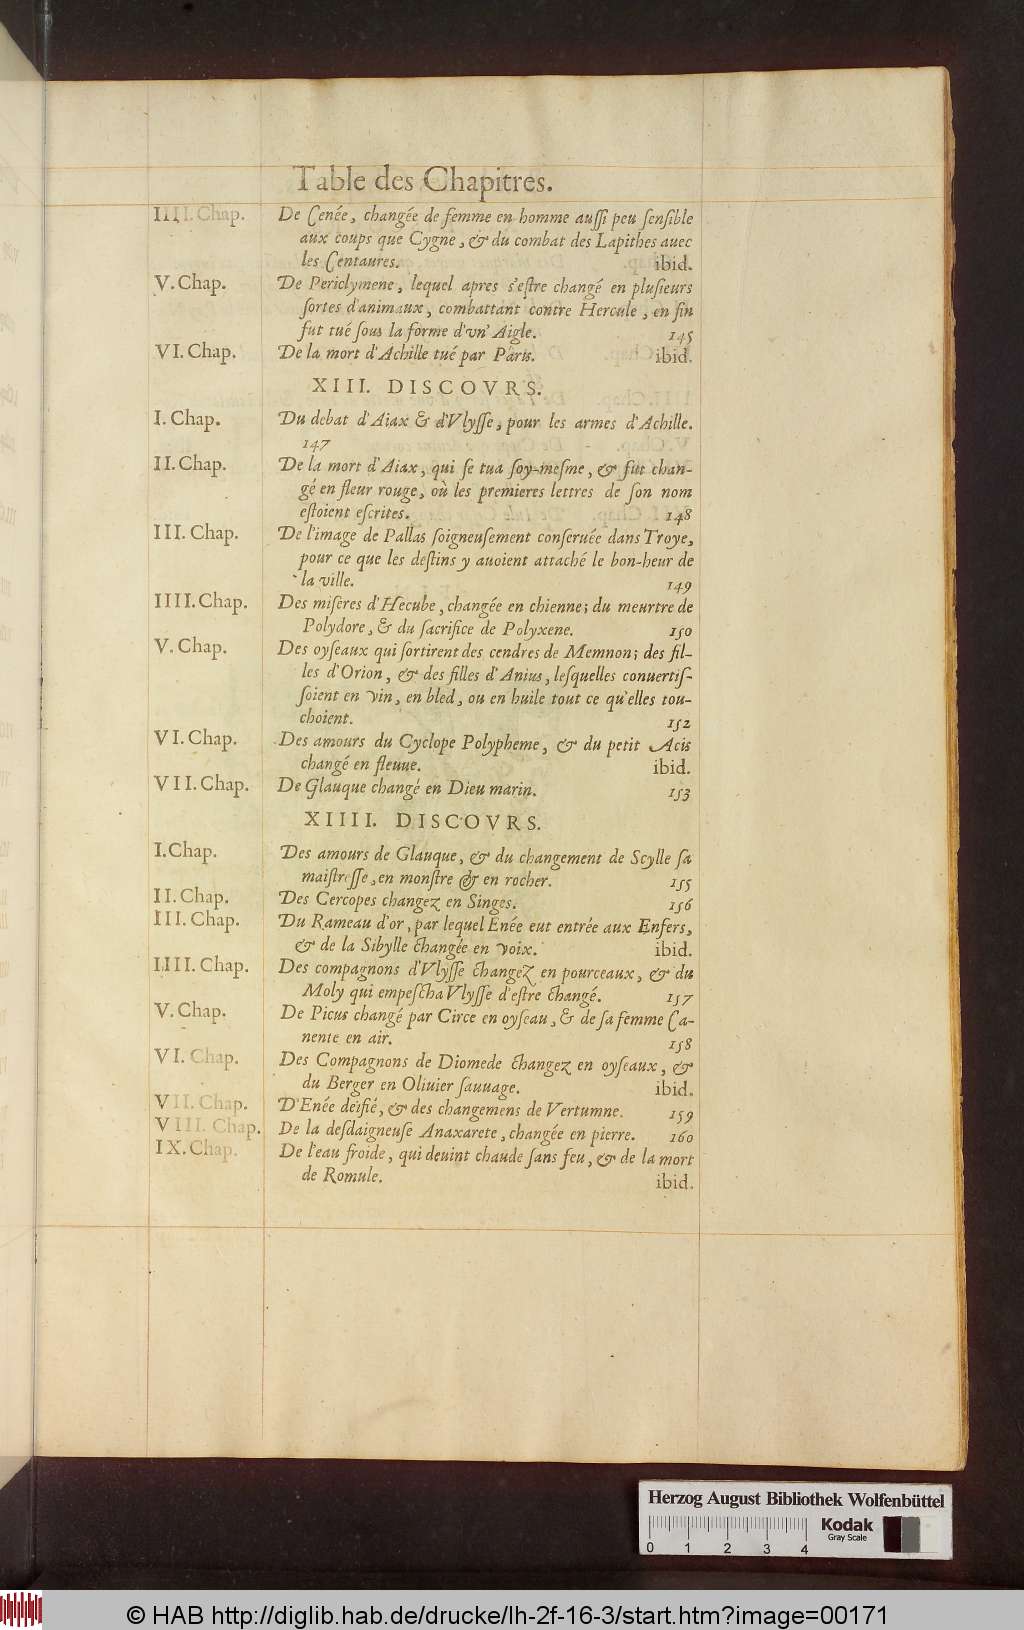 Table des Chapitres.
IIII. Chap. De Cenée, changée de femme en homme aussi peu sensible
aux coups que Cygne, & du combat des Lapithes auec
les Centaures. ibid.
V. Chap. De Periclymene, lequel apres s'estre changé en plusieurs
sortes d'animaux, combattant contre Hercule, en fin
fut tué sous la forme d'vn' Aigle. 145
VI. Chap. De la mort d'Achille tué par Pâris. ibid.
XIII. DISCOVRS.
I. Chap. Du debat d'Aiax & d'Vlysse, pour les armes d'Achille.
147
II. Chap. De la mort d'Aiax, qui se tua soy-mesme, & fut chan-
gé en fleur rouge, où les premieres lettres de son nom
estoient escrites. 148
III. Chap. De l'image de Pallas soigneusement conseruée dans Troye,
pour ce que les destins y auoient attaché le bon-heur de
la ville. 149
IIII. Chap. Des miseres d'Hecube, changée en chienne; du meurtre de
Polydore, & du sacrifice de Polyxene. 150
V. Chap. Des oyseaux qui sortirent des cendres de Memnon; des fil-
les d'Orion, & des filles d'Anius, lesquelles conuertis-
soient en vin, en bled, ou en huile tout ce qu'elles tou-
choient. 152
VI. Chap. Des amours du Cyclope Polypheme, & du petit Acis
changé en fleuue. ibid.
VII. Chap. De Glauque changé en Dieu marin. 153
XIIII. DISCOVRS.
I. Chap. Des amours de Glauque, & du changement de Scylle sa
maistresse, en monstre & en rocher. 155
II. Chap. Des Cercopes changez en Singes. 156
III. Chap. Du Rameau d'or, par lequel Enée eut entrée aux Enfers,
& de la Sibylle changée en voix. ibid.
IIII. Chap. Des compagnons d'Vlysse changez en pourceaux, & du
Moly qui empescha Vlysse d'estre changé. 157
V. Chap. De Picus changé par Circe en oyseau, & de sa femme Ca-
nente en air. 158
VI. Chap. Des Compagnons de Diomede changez en oyseaux, &
du Berger en Oliuier sauuage. ibid.
VII. Chap. D'Enée deïfié, & des changemens de Vertumne. 159
VIII. Chap. De la desdaigneuse Anaxarete, changée en pierre. 160
IX. Chap. De l'eau froide, qui deuint chaude sans feu, & de la mort
de Romule. ibid.
Herzog August Bibliothek Wolfenbüttel
Kodak
Gray Scale
0 1 2 3 4
© HAB http://diglib.hab.de/drucke/lh-2f-16-3/start.htm?image=00171